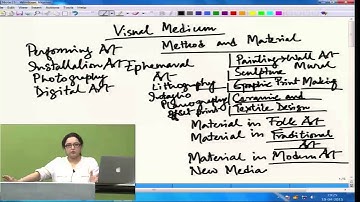 Visual Medium
Method and Material
Performing Art
Installation Art
Photography
Digital Art
Ephemeral
Art
Lithography
Intaglio
Planography
offset print
Painting & Wall Art
Mural
Sculpture
Graphic Print Making
Ceramic and
Textile Design
Material in Folk Art
Material in Traditional
Art
Material in Modern Art
New Media